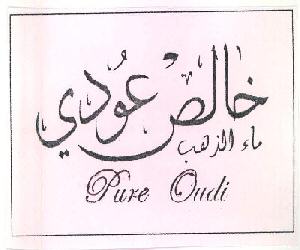 خالص عودي
ماء الذهب
Pure Oudi